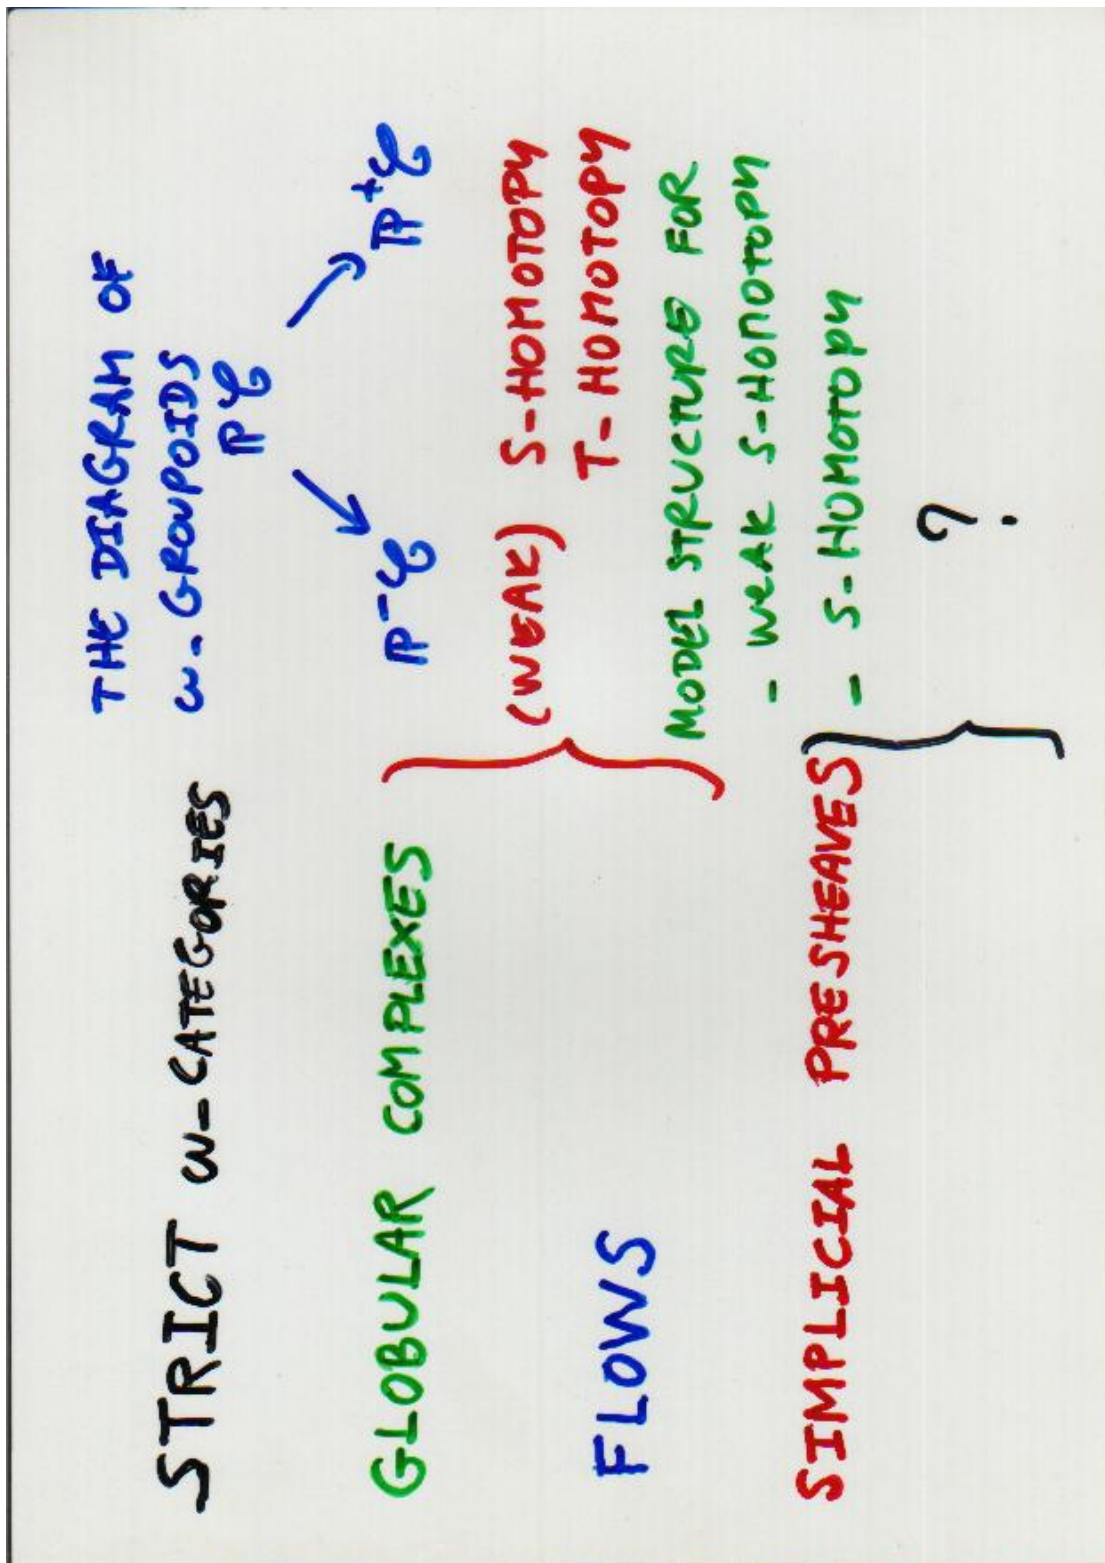 STRICT ω-CATEGORIES
THE DIAGRAM OF
ω-GROUPOIDS
ℙ𝒞
ℙ⁻𝒞 ℙ⁺𝒞
GLOBULAR COMPLEXES
FLOWS
(WEAK) S-HOMOTOPY
T-HOMOTOPY
MODEL STRUCTURE FOR
- WEAK S-HOMOTOPY
- S-HOMOTOPY
SIMPLICIAL PRESHEAVES
?